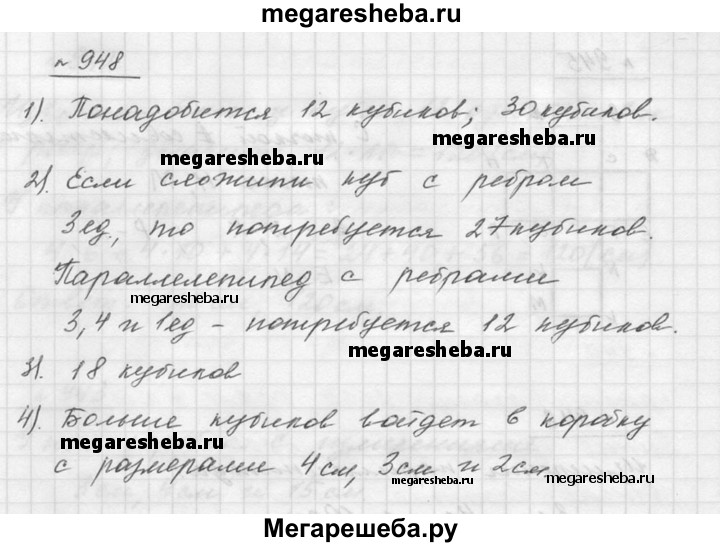 megaresheba.ru
№ 948
1). Понадобится 12 кубиков; 30 кубиков.
megaresheba.ru
megaresheba.ru
2). Если сложили куб с ребром
3ед., то потребуется 27 кубиков.
megaresheba.ru
Параллелепипед с ребрами
megaresheba.ru
3, 4 и 1ед - потребуется 12 кубиков.
megaresheba.ru
3). 18 кубиков
4). Больше кубиков войдет в коробку
megaresheba.ru
с размерами 4см, 3см и 2см.
megaresheba.ru
megaresheba.ru
Мегарешеба.ру